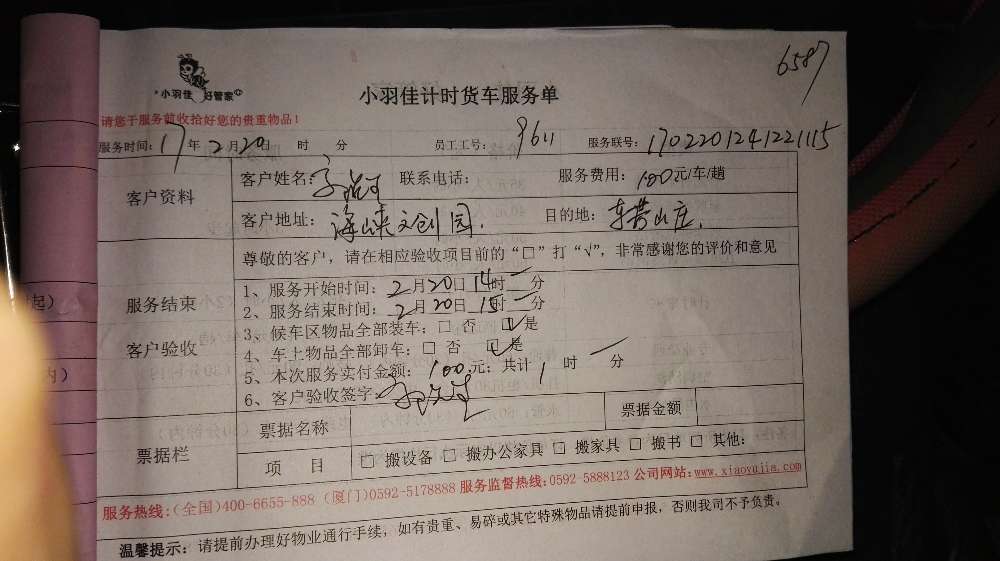 6587
小羽佳 好管家
小羽佳计时货车服务单
请您于服务前收拾好您的贵重物品！
服务时间：17年2月20日 时 分 员工工号：9611 服务联号：1702201241221115
客户资料
客户姓名： 联系电话： 服务费用：100元/车/趟
客户地址：海峡文创园. 目的地：东普山庄.
尊敬的客户，请在相应验收项目前的“□”打“√”，非常感谢您的评价和意见
服务结束
客户验收
1、服务开始时间：2月20日14时一分
2、服务结束时间：2月20日15时一分
3、候车区物品全部装车：□ 否 ☑是
4、车上物品全部卸车：□ 否 ☑是
5、本次服务实付金额：100元；共计1时一分
6、客户验收签字：
票据栏
票据名称 票据金额
项 目 □ 搬设备 □ 搬办公家具 □ 搬家具 □ 搬书 □ 其他：
服务热线：(全国)400-6655-888 (厦门)0592-5178888 服务监督热线：0592-5888123 公司网站：www.xiaoyujia.com
温馨提示：请提前办理好物业通行手续，如有贵重、易碎或其它特殊物品请提前申报，否则我司不予负责。
起）
内）